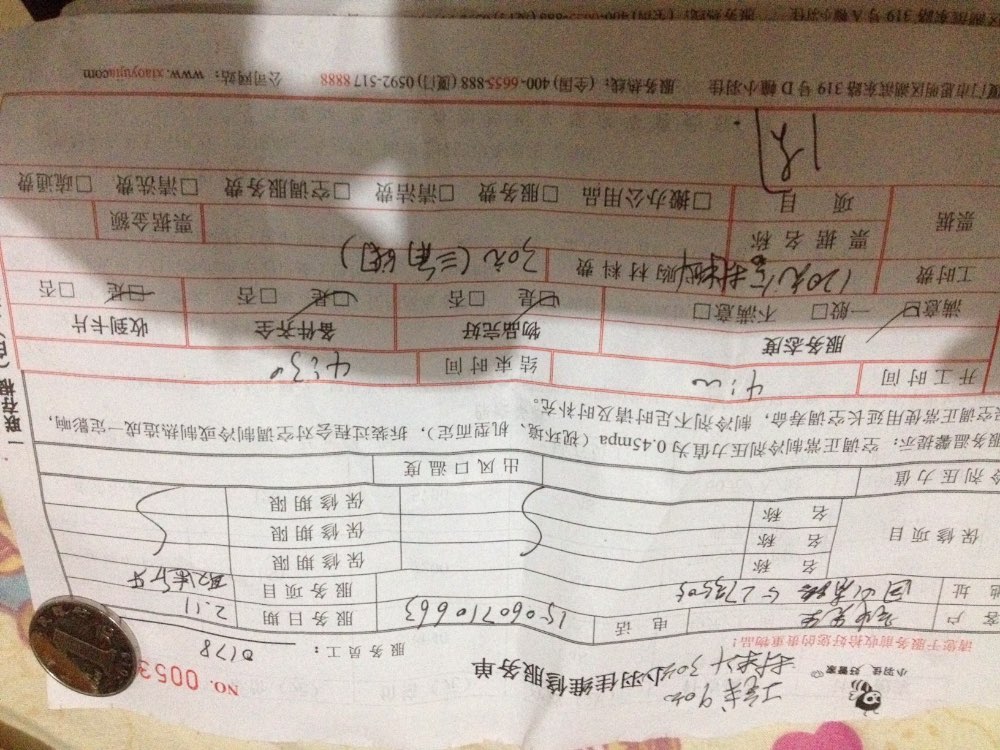 小羽佳 好管家
小羽佳维修服务单
NO. 0053
工费90元
请您于服务前收拾好您的贵重物品!
服务员工: 0178
客 户
电 话 15060710663 服务日期 2.11
地 址 服务项目
保修项目 名 称 保修期限
名 称 保修期限
名 称 保修期限
冷剂压力值 出风口温度
服务温馨提示: 空调正常制冷剂压力值为0.45mpa (视环境、机型而定), 拆装过程会对空调制冷或制热造成一定影响,
空调正常使用延长空调寿命, 制冷剂不足时请及时补充。
开工时间 4:00 结束时间 4:30
服务态度 物品完好 备件齐全 收到卡片
满意□ 一般□ 不满意□ □是 □否 □是 □否 □是 □否
工时费 120元 购材料费 30元
票据 票据名称 票据金额
项 目 □搬办公用品 □服务费 □清洁费 □空调服务费 □清洗费 □疏通费
厦门市思明区湖滨东路319号D幢小羽佳 服务热线: (全国) 400-6655-888 (厦门) 0592-517 8888 公司网站: www.xiaoyujia.com
一联存根